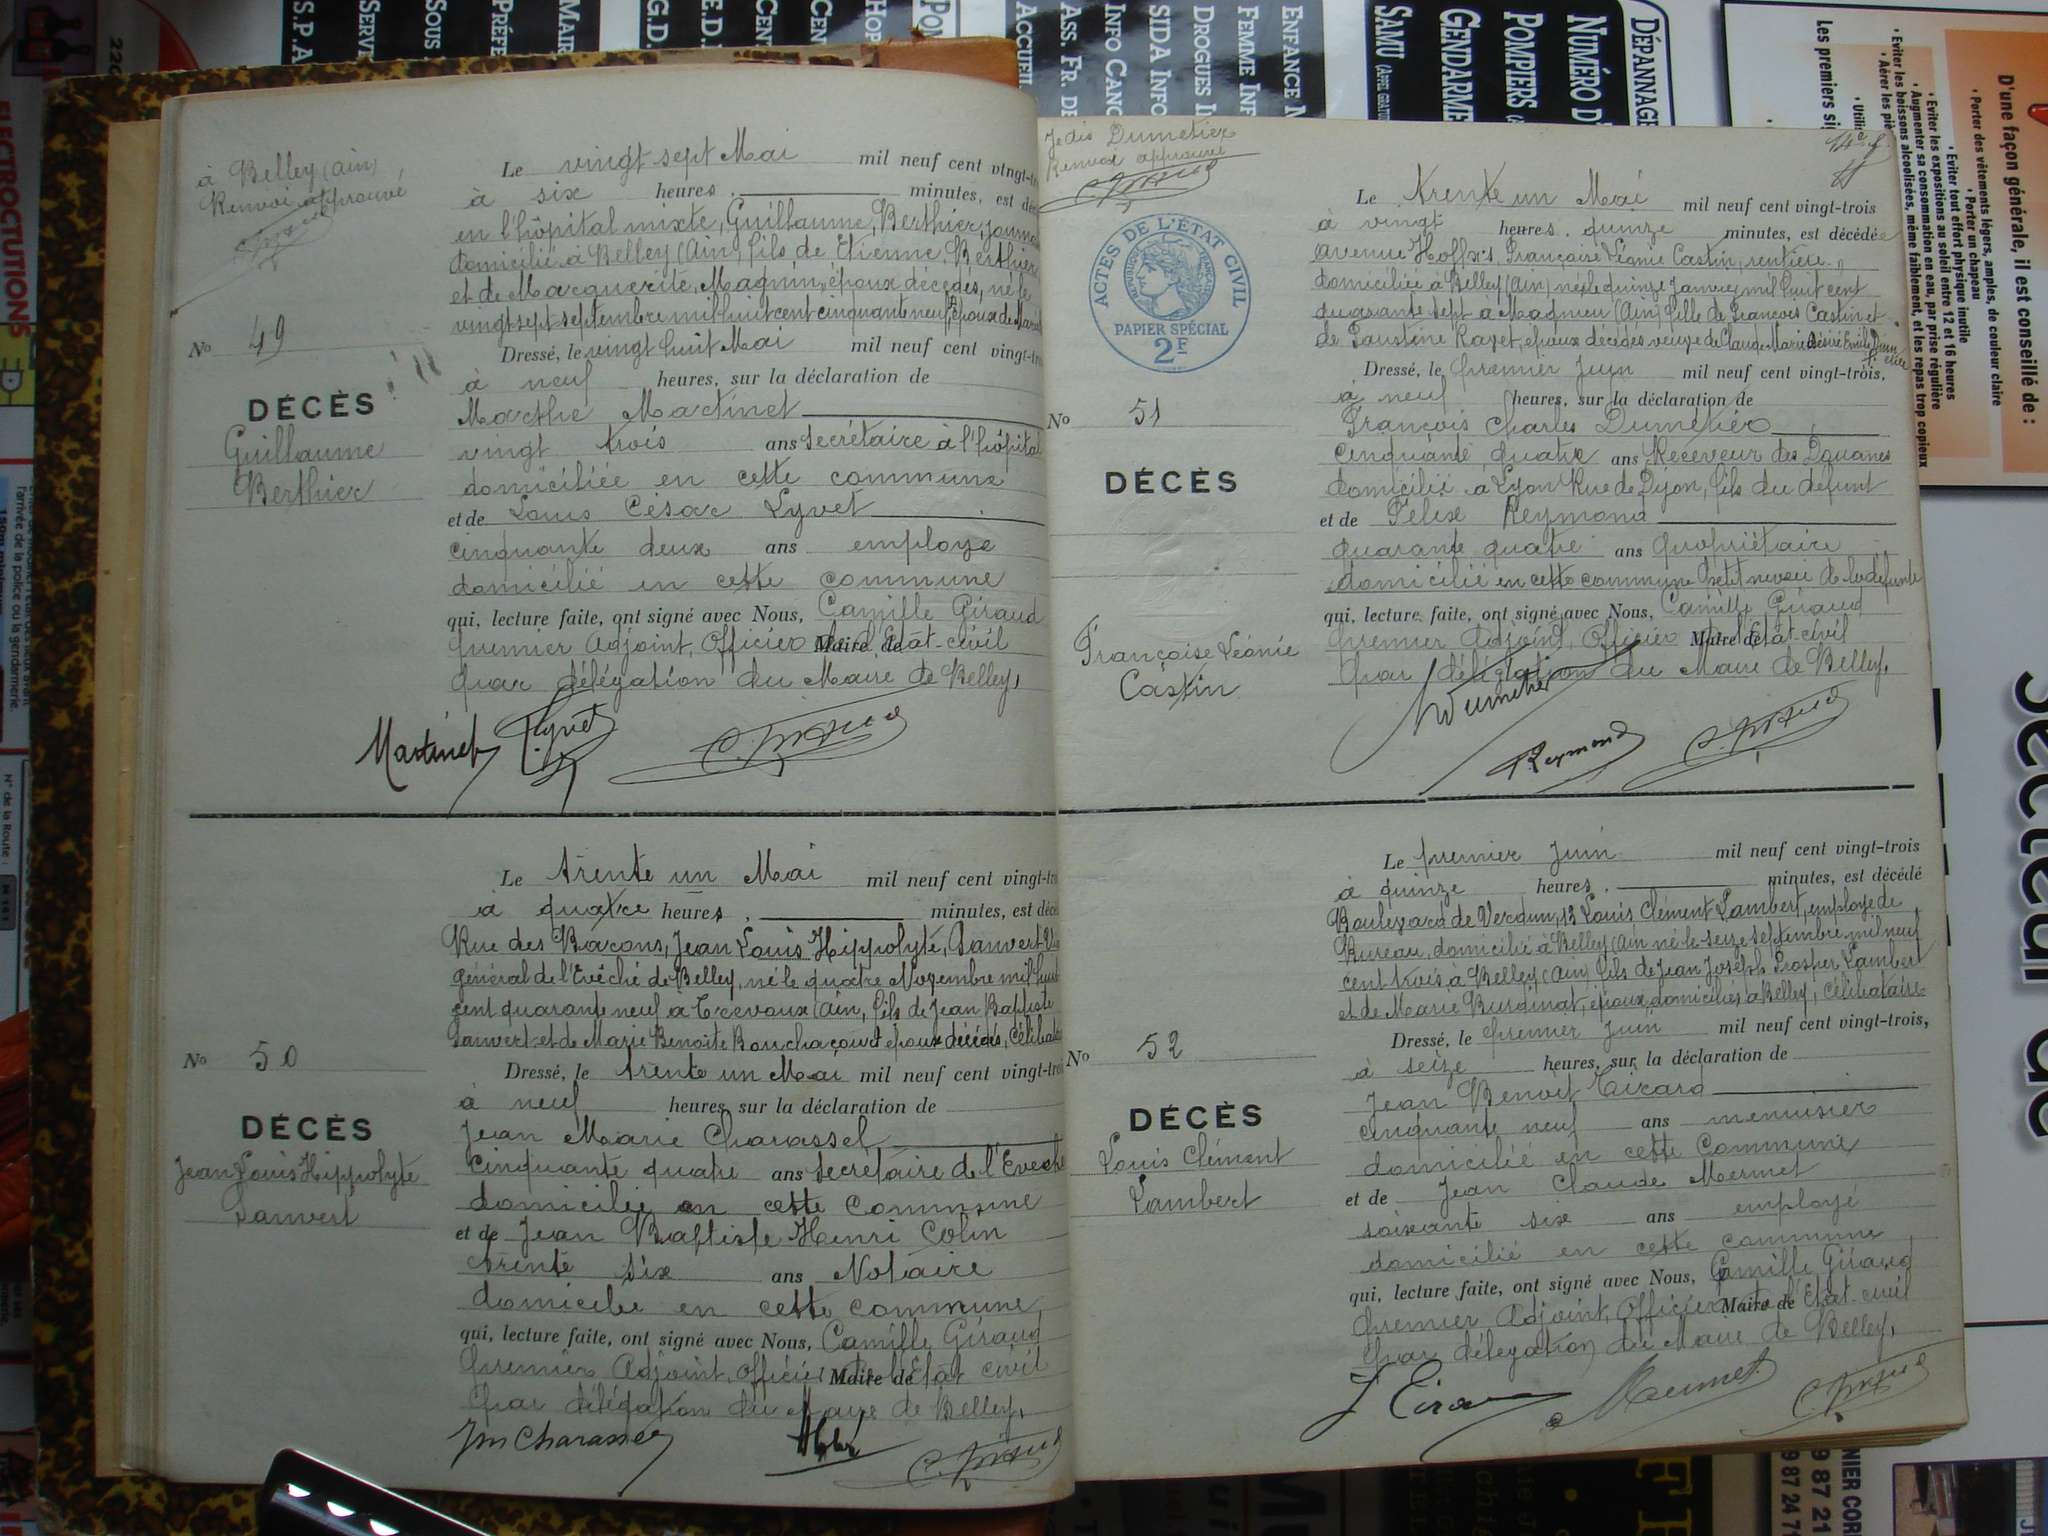 à Belley (Ain)
Renvoi approuvé
Le vingt sept Mai mil neuf cent vingt-
à six heures, minutes, est
en l'hôpital mixte, Guillaume, Berthier,
domicilié à Belley (Ain) fils de Etienne, Berthier
et de Marguerite, Magnin, époux décédés, né le
vingt sept septembre mil huit cent cinquante neuf, époux de
No 49
Dressé, le vingt huit Mai mil neuf cent vingt-
à neuf heures, sur la déclaration de
DÉCÈS
Guillaume
Berthier
Marthe Martinet
vingt trois ans secrétaire à l'hôpital
domiciliée en cette commune
et de Louis César Lyvet
cinquante deux ans employé
domicilié en cette commune
qui, lecture faite, ont signé avec Nous, Camille Giraud
premier Adjoint, Officier de l'état-civil
Maire de
par délégation du Maire de Belley,
Martinet Lyvet
Le trente un Mai mil neuf cent vingt-
à quatre heures, minutes, est
Rue des Barons, Jean Louis Hippolyte, Janvert
général de l'Evêché de Belley, né le quatre Novembre mil huit
cent quarante neuf à Trevoux (Ain, fils de Jean Baptiste
Janvert et de Marie Benoite Bouchacourt époux décédés,
No 50
Dressé, le trente un Mai mil neuf cent vingt-
à neuf heures, sur la déclaration de
DÉCÈS
Jean Louis Hippolyte
Janvert
Jean Marie Charassel
cinquante quatre ans secrétaire de l'Evêché
domicilié en cette commune
et de Jean Baptiste Henri Colin
trente six ans Notaire
domicilié en cette commune,
qui, lecture faite, ont signé avec Nous, Camille Giraud
premier Adjoint, Officier de l'Etat civil
Maire de
par délégation du Maire de Belley,
Je dis Dumetier
Renvoi approuvé
Le trente un Mai mil neuf cent vingt-trois
à vingt heures, quinze minutes, est décédée
avenue Hoff, Françoise Léonie Castin, rentière
domiciliée à Belley (Ain) née le quinze janvier mil huit cent
quarante sept à Magnieu (Ain) fille de François Castin et
de Faustine Rayet, époux décédés veuve de Claude Marie Désiré Emile
ACTES DE L'ÉTAT CIVIL
RÉPUBLIQUE FRANÇAISE
PAPIER SPÉCIAL
2F
No 51
Dressé, le premier Juin mil neuf cent vingt-trois,
à neuf heures, sur la déclaration de
DÉCÈS
Françoise Léonie
Castin
François Charles Dumétier
cinquante quatre ans Receveur des Douanes
domicilié à Lyon Rue de Dijon, fils du défunt
et de Félix Reymond
quarante quatre ans propriétaire
domicilié en cette commune petit neveu de la défunte
qui, lecture faite, ont signé avec Nous, Camille Giraud
premier Adjoint, Officier de l'Etat-civil
Maire de
par délégation du Maire de Belley,
Dumetier
Reymond
Le premier Juin mil neuf cent vingt-trois
à quinze heures, minutes, est décédé
Boulevard de Verdun, 12 Louis Clément Lambert, employé de
Bureau, domicilié à Belley (Ain né le seize septembre mil neuf
cent trois à Belley, (Ain) fils de Jean Joseph Prosper Lambert
et de Marie Burdinat, époux domiciliés à Belley, célibataire
No 52
Dressé, le premier Juin mil neuf cent vingt-trois,
à seize heures, sur la déclaration de
DÉCÈS
Louis Clément
Lambert
Jean Benoit Tirard
cinquante neuf ans menuisier
domicilié en cette commune
et de Jean Claude Mermet
soixante six ans employé
domicilié en cette commune
qui, lecture faite, ont signé avec Nous, Camille Giraud
premier Adjoint, Officier de l'Etat-civil
Maire de
par délégation du Maire de Belley,
Mermet
DÉPANNAGE
POMPIERS
GENDARME
SAMU
ENFANCE
DROGUES
SIDA INFO
ACCUEIL
D'une façon générale, il est conseillé de :
• Porter des vêtements légers, amples, de couleur claire
• Porter un chapeau
• Eviter tout effort physique inutile
• Eviter les expositions au soleil entre 12 et 16 heures
• Augmenter sa consommation en eau, par prise régulière
• Eviter les boissons alcoolisées, même faiblement, et les repas trop copieux
Les premiers
ELECTROCUTIONS
secteur